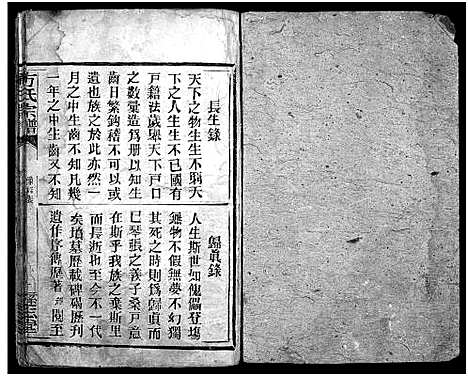 長生錄
天下之物生生不窮天
下之人生生不已國有
戶籍法歲舉天下戶口
之數彙造爲册以知生
齒日繁鈎稽不可以或
遺也族之於此亦然一
月之中生齒不知凡幾
一年之中生齒又不知
歸眞錄
人生斯世如傀儡登塲
儷物不假無夢不幻獨
其死之時則爲歸眞而
已琴張之義子桑戶意
在斯乎我族之棄斯里
而長逝也至今不一代
矣墳墓歷載碑碣歷刋
遺作序傳歷著 閱至
方氏宗譜